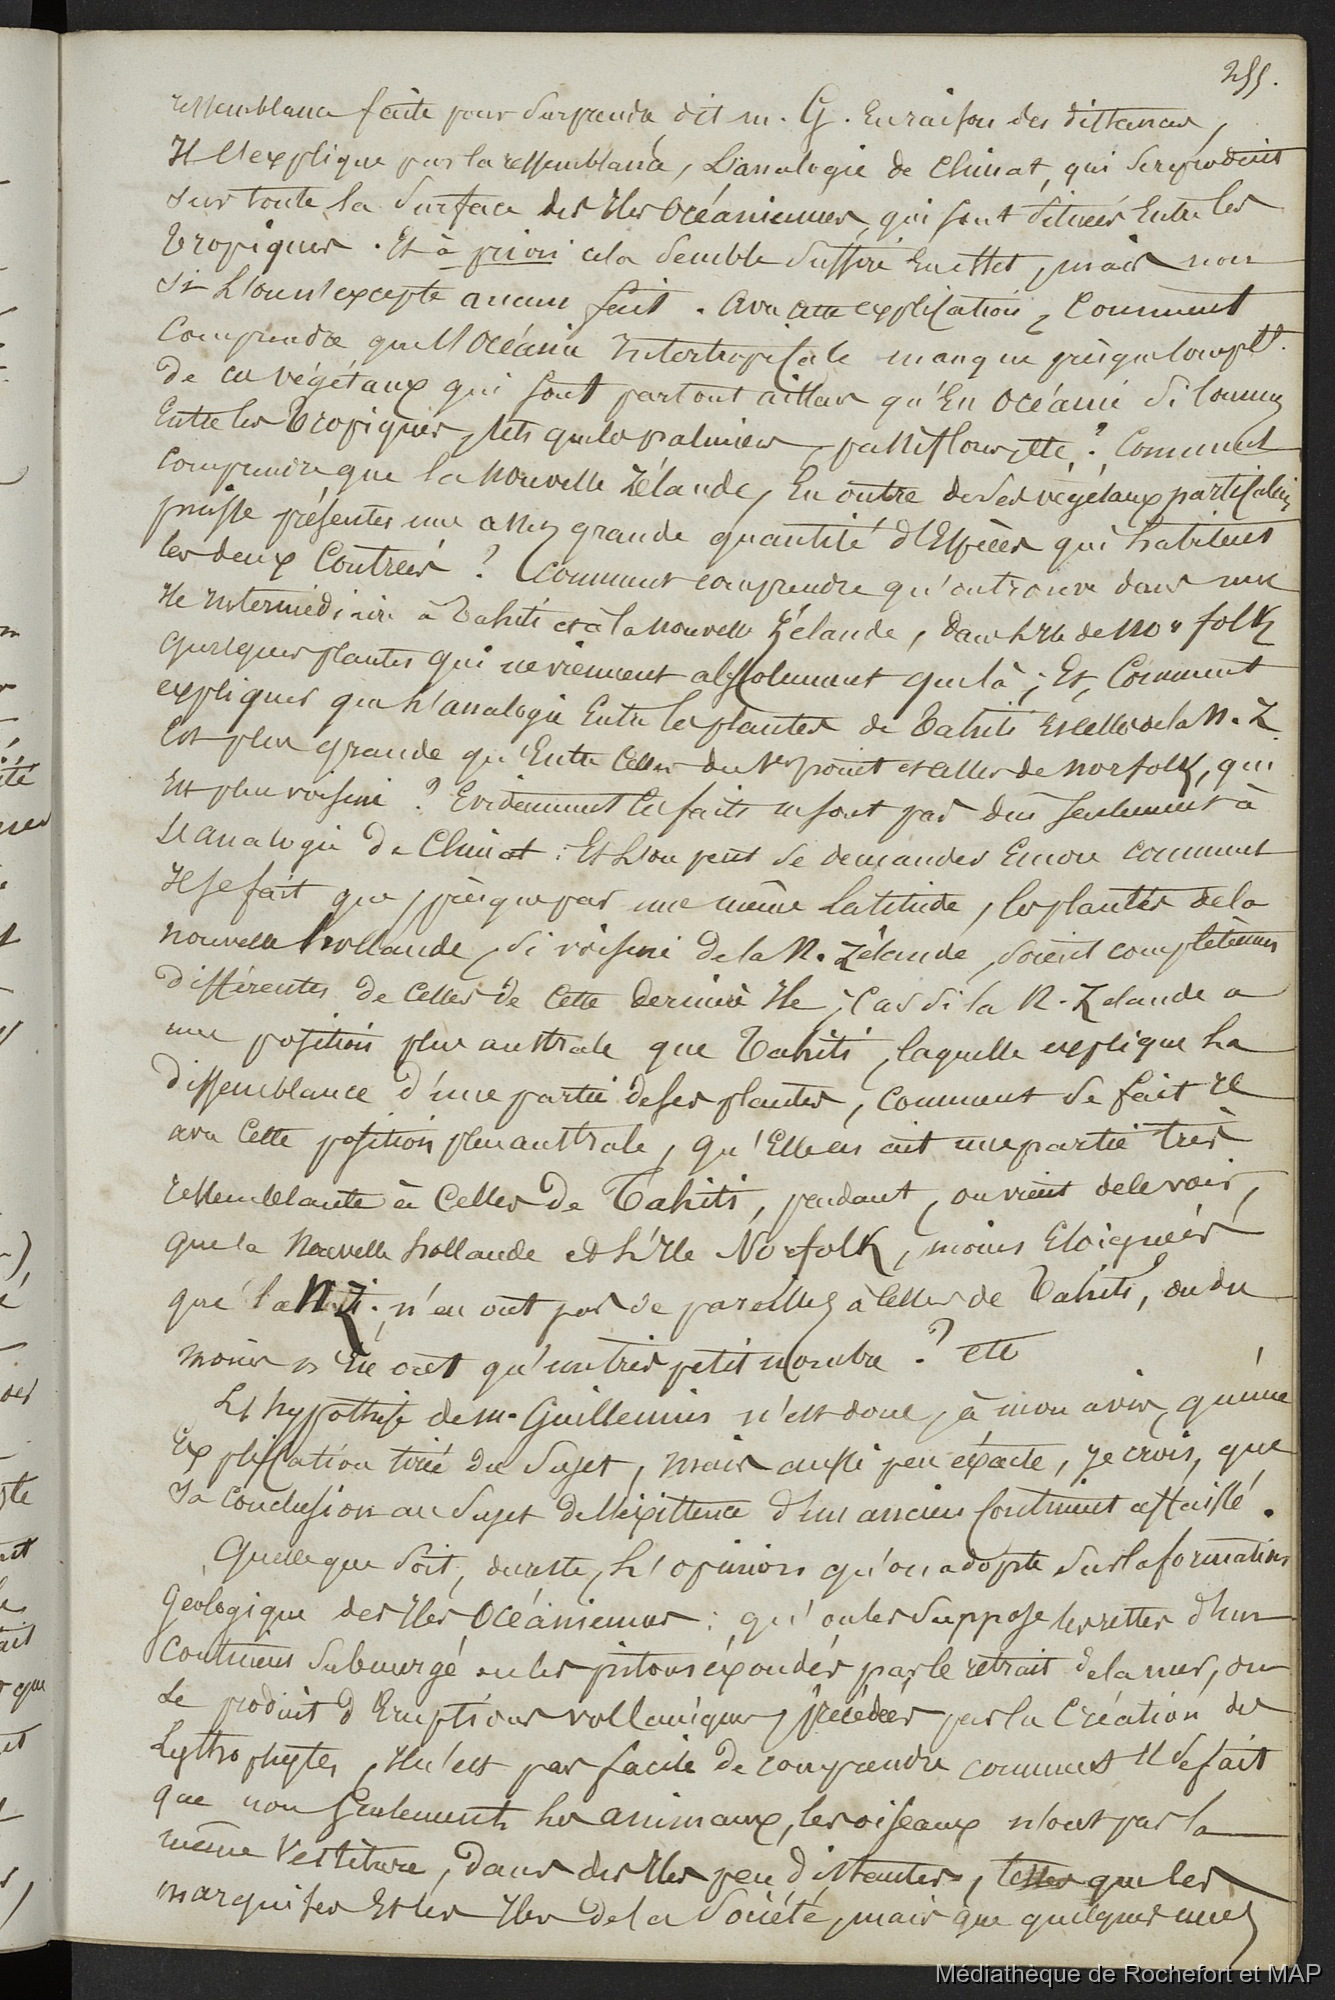 255.
ressemblance faite pour surprendre, dit m. G. En raison des distances,
Il l'explique par la ressemblance, L'analogie de Climat, qui se reproduit
sur toute la surface des Iles Océaniennes, qui sont situées Entre les
tropiques. Et à priori cela semble suffire En effet, mais non
si L'on n'excepte aucun fait. Avec cette explication, Comment
Comprendre que l'Océanie Intertropicale manque presque complt.
de ces végétaux qui sont partout ailleurs qu'En Océanie si communs
Entre les Tropiques, tels que les palmiers, passiflores, etc? Comment
comprendre que la Nouvelle Zélande, En outre de ses végétaux particuliers
puisse présenter une assez grande quantité d'Espèces qui habitent
les deux Contrées? Comment comprendre qu'on trouve dans une
Ile Intermédiaire à Tahiti et à la Nouvelle Zélande, dans L'Ile de Norfolk
quelques plantes qui ne viennent absolument que là; Et, Comment
expliquer que L'analogie Entre les plantes de Tahiti Et celles de la N. Z.
Est plus grande qu'Entre Celles du 1er point et celles de Norfolk, qui
Est plus voisine? Evidemment les faits ne sont pas dûs seulement à
L'analogie de Climat. Et L'on peut se demander Encore comment
Il se fait que, presque par une même Latitude, les plantes de la
Nouvelle hollande, si voisine de la N. Zélande, soient complètement
différentes de Celles de Cette dernière Ile; Car si la N. Zelande a
une position plus australe que Tahiti, laquelle explique la
dissemblance d'une partie de ses plantes, comment se fait Il
avec Cette position plus australe, qu'Elle en ait une partie très
ressemblante à Celles de Tahiti, pendant, on vient de le voir,
que la Nouvelle hollande et L'Ile Norfolk, moins Eloignées
que la N.Z., n'en ont pas de pareilles à Celles de Tahiti, ou du
moins n'En ont qu'un très petit nombre? etc
L'hypothèse de m. Guillemin n'est donc, à mon avis, qu'une
Explication tirée du sujet, mais aussi peu éxacte, je crois, que
sa conclusion au sujet de l'existence d'un ancien Continent affaissé.
Quelle que soit, du reste, L'opinion qu'on adopte sur la formation
géologique des Iles Océaniennes: qu'on les suppose les restes d'un
Continent submergé ou les pitons éxondés par le retrait de la mer, ou
Le produit d'Eruptions volcaniques, précédées par la Création des
Lythophytes, Il n'est pas facile de comprendre comment Il se fait
que non seulement les animaux, les oiseaux n'ont pas la
même Vestiture, dans des Iles peu distantes, telles que les
marquises Et les Iles de la Société, mais que quelques unes
Médiathèque de Rochefort et MAP